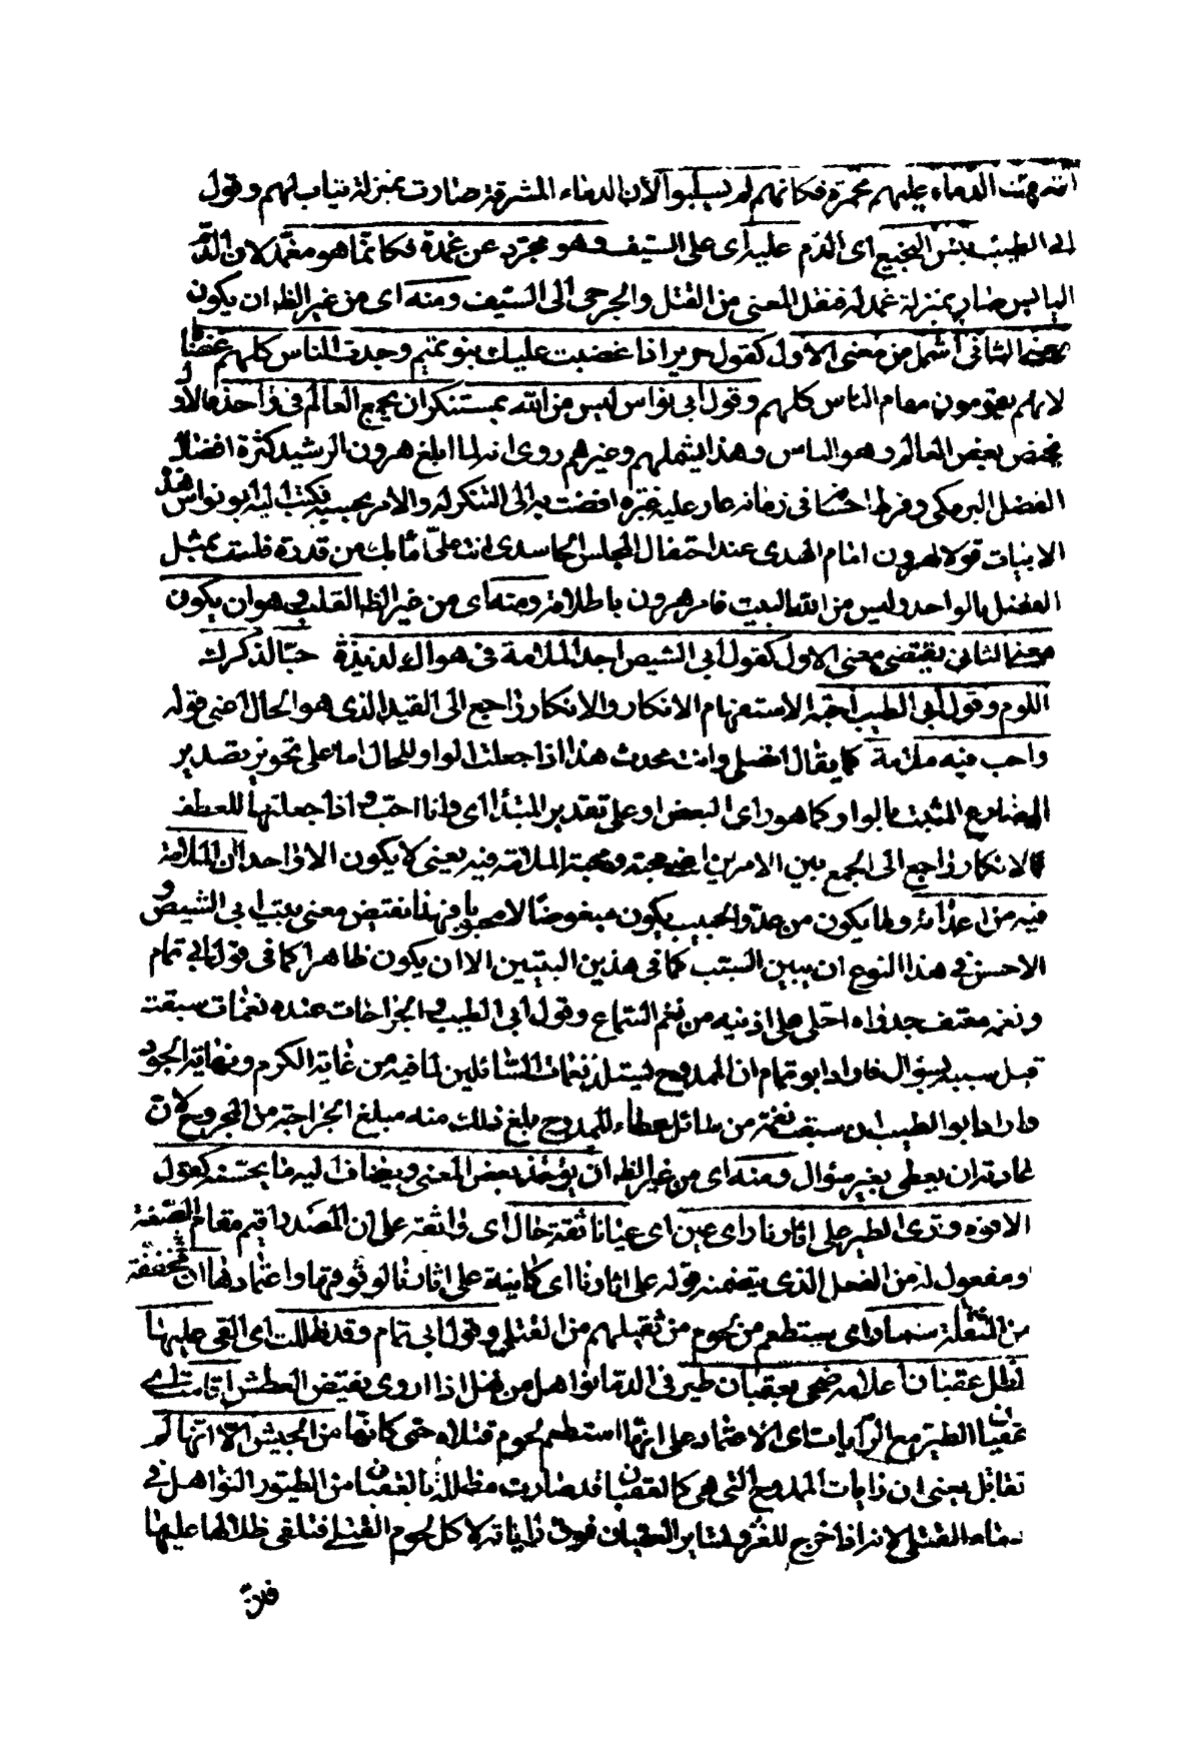 الدماء عليهم محمرة فكانهم لم يسلبوا لان الدماء المشرقة صارت بمنزلة ثياب لهم وقول
ابى الطيب يبس النجيع اى الدم عليه اى على السيف وهو مجرد عن غمده فكانما هو مغمد لان الدم
اليابس صار بمنزلة غمد له فنقل المعنى من القتلى والجرحى الى السيف ومنه اى من غير الظاهر ان يكون
معنى الثانى اشمل من معنى الاول كقول جرير اذا غضبت عليك بنو تميم وجدت الناس كلهم غضابا
لانهم يقومون مقام الناس كلهم وقول ابى نواس ليس من الله بمستنكر ان يجمع العالم فى واحد فالاول
يختص ببعض العالم وهو الناس وهذا يشملهم وغيرهم روى انه لما بلغ هرون الرشيد كثرة افضال
الفضل البرمكى وفرط احسانه فى زمانه غار عليه غيرة افضت به الى التنكر له والامر بحبسه فكتب اليه ابو نواس هذه
الابيات قولا لهرون امام الهدى عند احتفال المجلس الحاسد انت على ما بك من قدرة فلست مثل
الفضل بالواحد وليس من الله البيت فامر هرون باطلاقه ومنه اى من غير الظاهر القلب وهو ان يكون
معنى الثانى يقتضى معنى الاول كقول ابى الشيص اجد الملامة فى هواك لذيذة حبا لذكرك
اللوم وقول ابى الطيب أحبه الاستفهام الانكار والانكار راجع الى القيد الذى هو الحال اعنى قوله
واحب فيه ملامة كما يقال اتصلى وانت محدث هذا اذا جعلت الواو للحال اما على تجويز تصدير
المضارع المثبت بالواو كما هو راى البعض او على تقدير المبتدأ اى وانا احب واذا جعلتها للعطف
فالانكار راجع الى الجمع بين الامرين اعنى محبته ومحبة الملامة فيه يعنى لا يكون الا واحد ان الملامة
فيه من اعدائه وما يكون من عدو الحبيب يكون مبغوضا لا محبوبا فهذا نقيض معنى بيت ابى الشيص و
الاحسن فى هذا النوع ان يبين السبب كما فى هذين البيتين الا ان يكون ظاهرا كما فى قول ابى تمام
ونغمة معتف جدواه احلى على اذنيه من نغم السماع وقول ابى الطيب والجراحات عنده نغمات سبقت
قبل سيبه بسؤال فاراد ابو تمام ان الممدوح يستلذ نغمات السائلين لما فيه من غاية الكرم ونهاية الجود
واراد ابو الطيب ان سبقت نغمة من سائل عطاء الممدوح بلغ ذلك منه مبلغ الجراحة من المجروح لان
عادته ان يعطى بغير سؤال ومنه اى من غير الظاهر ان يؤخذ بعض المعنى ويضاف اليه ما يحسنه كقول
الافوه وترى الطير على اثارنا راى عين اى عيانا ثقة حال اى واثقة على ان المصدر اقيم مقام الصفة
ومفعول له من الفعل الذى يتضمنه قوله على اثارنا اى كاينة على اثارنا لوثوقها واعتمادها ان مخففة
من المثقلة ستمار اى ستطعم من لحوم من نقتلهم من القتلى وقول ابى تمام وقد ظللت اى القى عليها
الظل عقبان اعلامه ضحى بعقبان طير فى الدماء نواهل من نهل اذا روى نقيض العطش اقامت اى
عقبان الطير مع الرايات اى الاعتماد على انها استطعم لحوم قتلاه حتى كانها من الجيش الا انها لم
تقاتل يعنى ان رايات الممدوح التى هى كالعقبان قد صارت مظللة بالعقبان من الطيور النواهل فى
دماء القتلى لانه اذا خرج للغزو تساير العقبان فوق راياته لاكل لحوم القتلى فتلقى ظلالها عليها